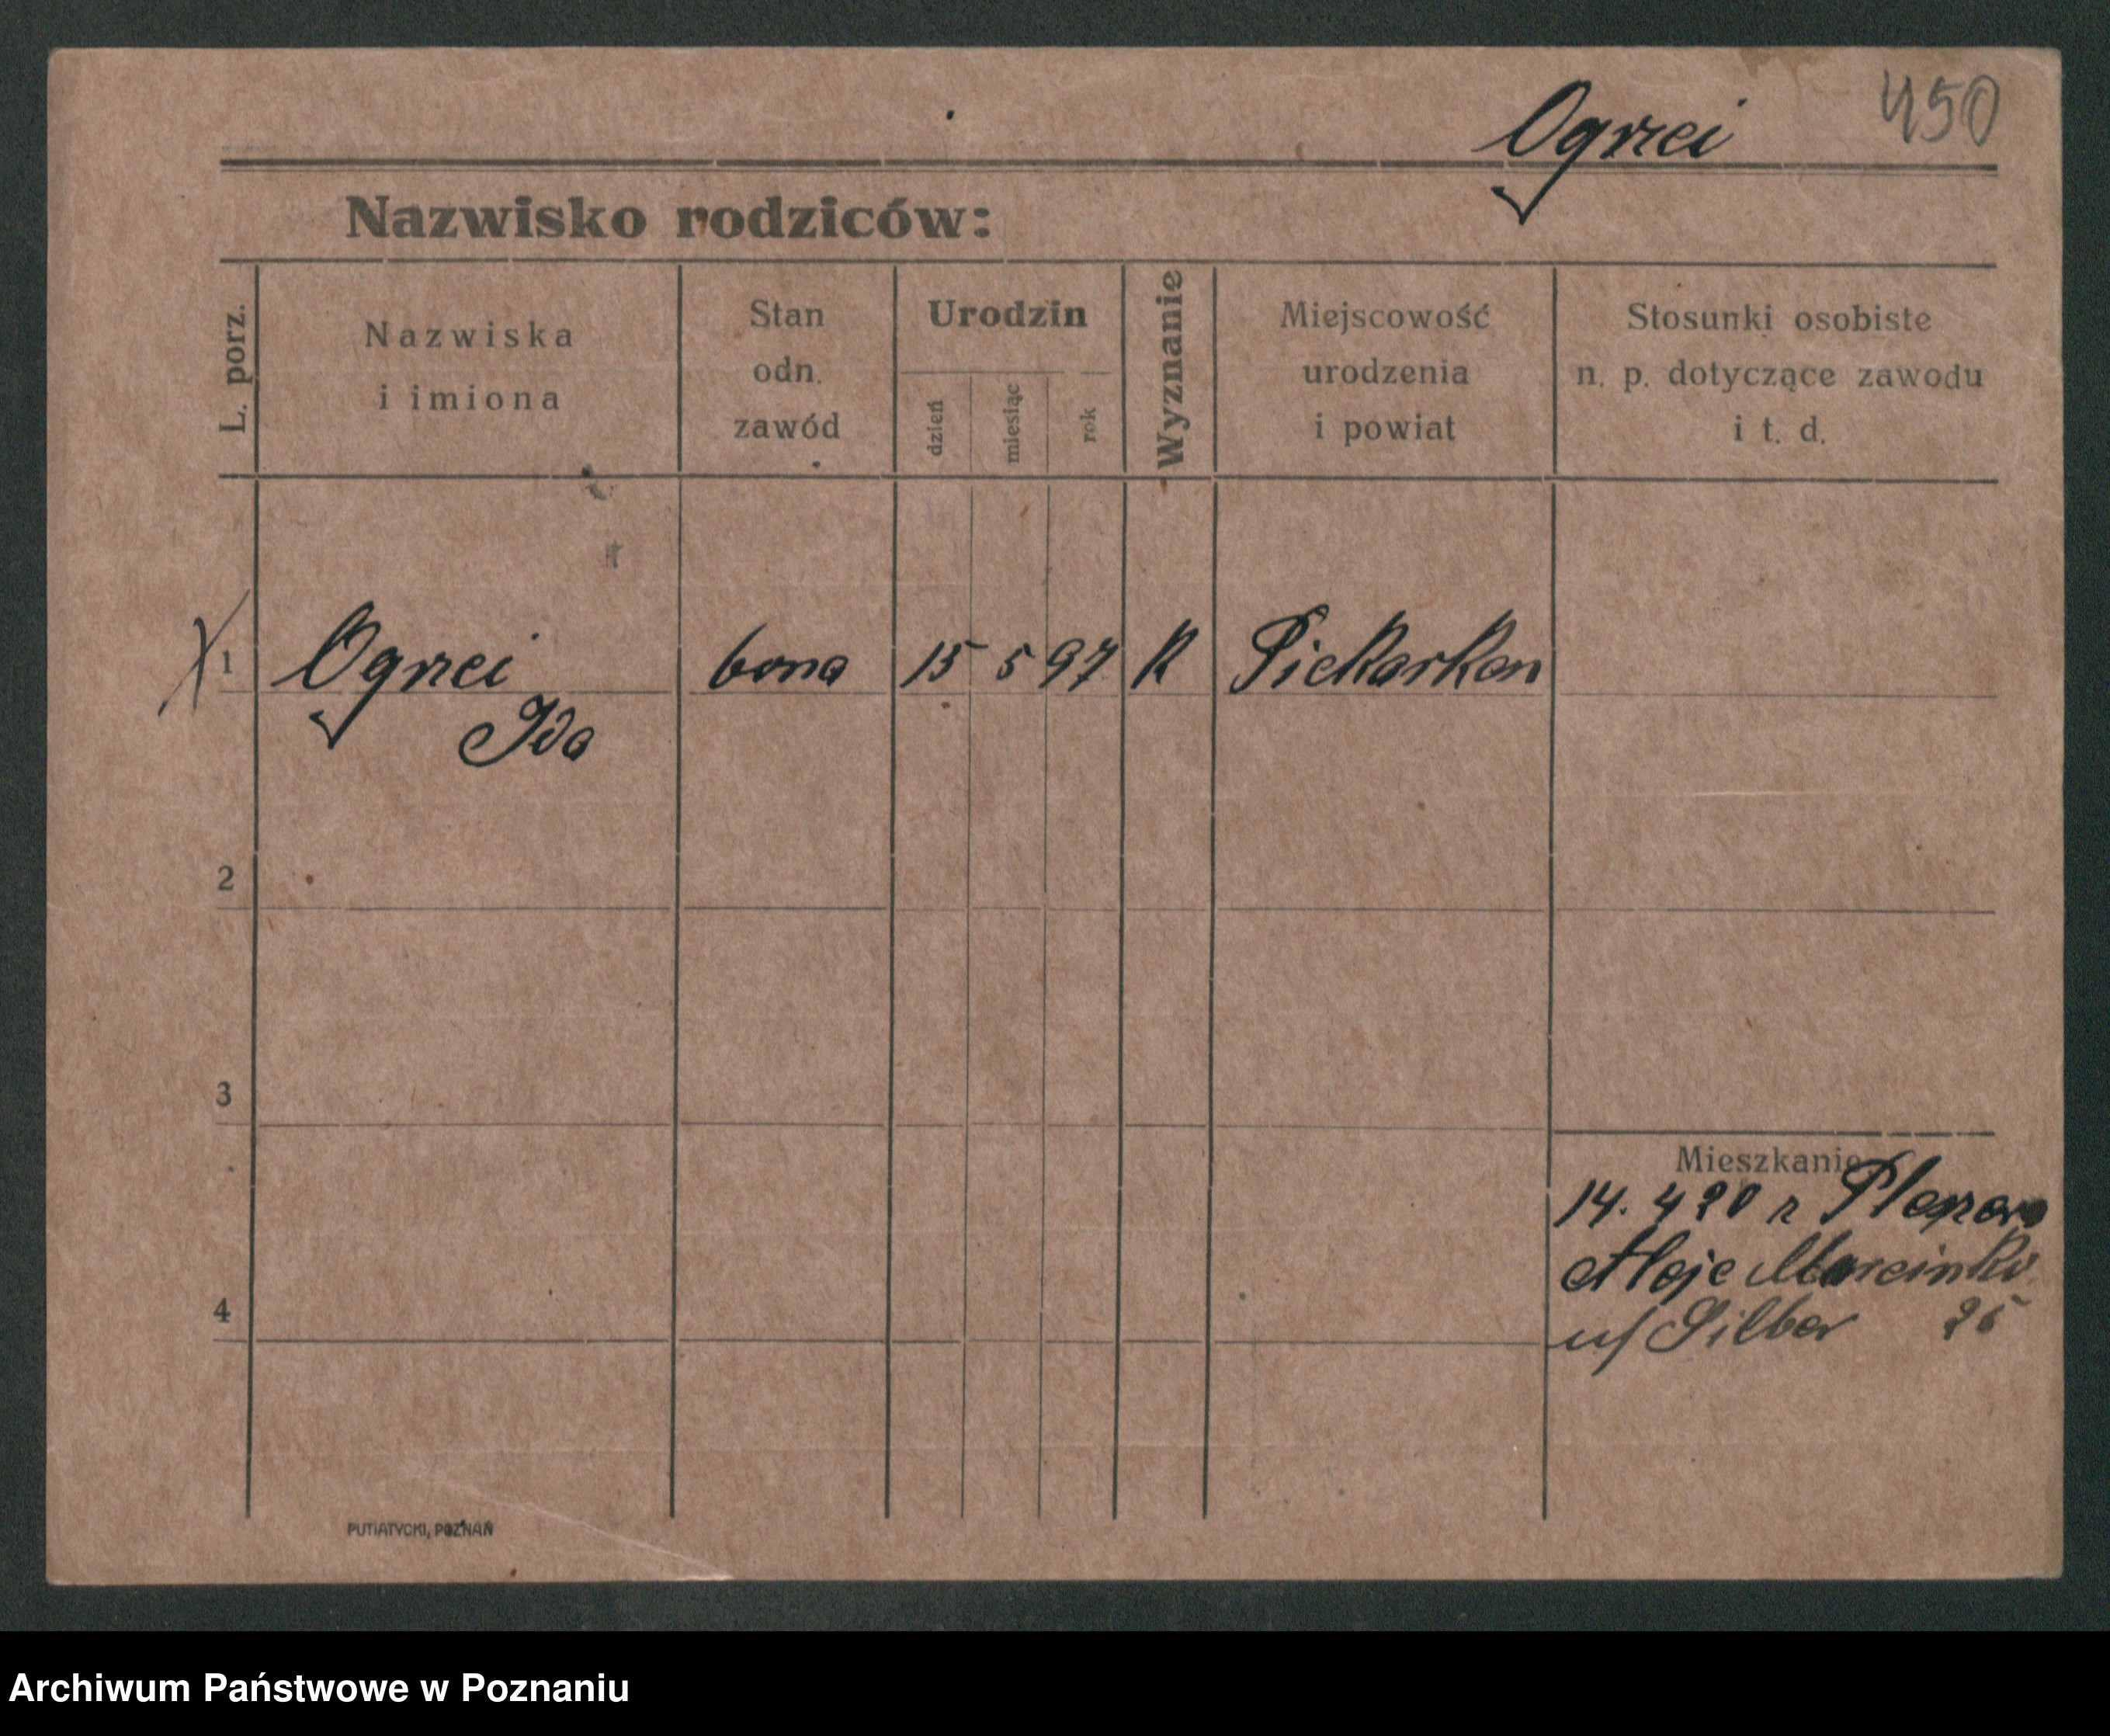 Ogrzei 450
Nazwisko rodziców:
L. porz.
Nazwiska
i imiona
Stan
odn.
zawód
Urodzin
dzień
miesiąc
rok
Wyznanie
Miejscowość
urodzenia
i powiat
Stosunki osobiste
n. p. dotyczące zawodu
i t. d.
1 Ogrzei bona 15 5 97 K Piekarken
Ida
2
3
Mieszkanie
14. 4 20 r
Aleje Marcinko
4
u/ Silber 25
PUTIATYCKI, POZNAŃ
Archiwum Państwowe w Poznaniu